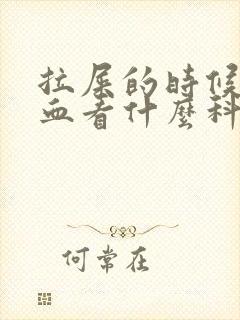 拉屎的時候
血看什麼科
何常在